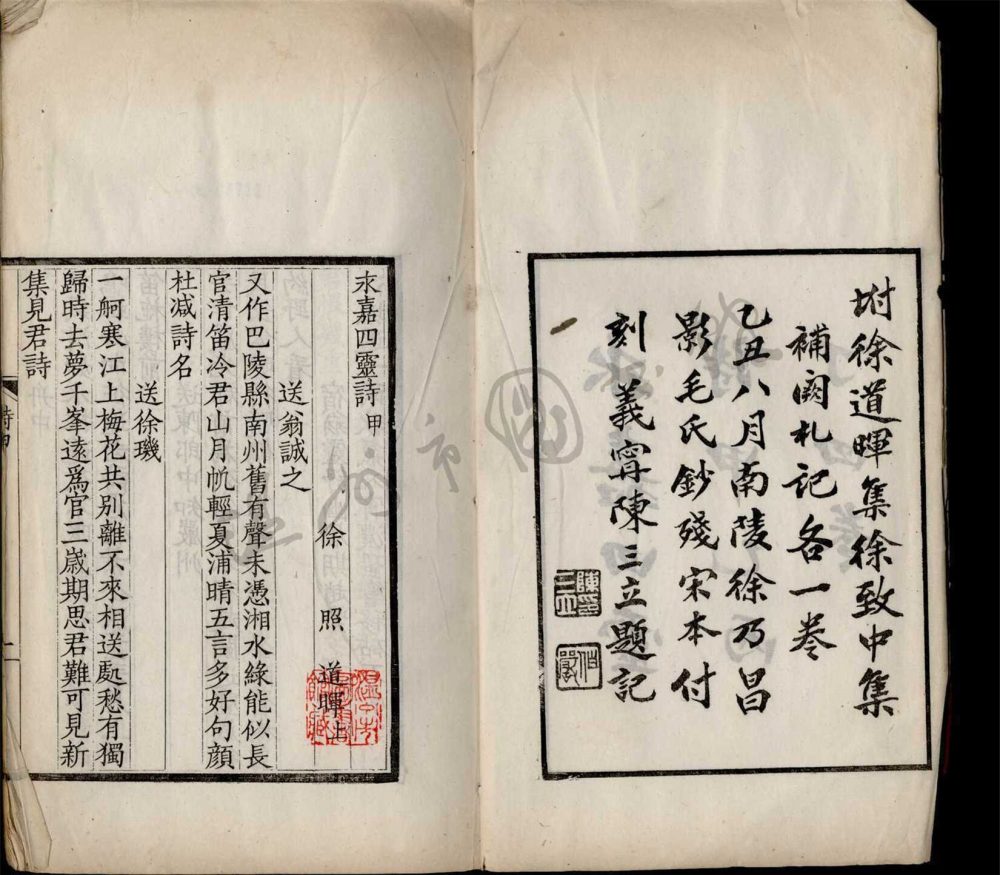 坿徐道暉集徐致中集
補闕札記各一卷
乙丑八月南陵徐乃昌
影毛氏鈔殘宋本付
刻 義寧陳三立題記
永嘉四靈詩甲
徐照 道暉上
送翁誠之
又作巴陵縣南州舊有聲未憑湘水綠能似長
官清笛冷君山月帆輕夏浦晴五言多好句顏
杜减詩名
送徐璣
一舸寒江上梅花共别離不來相送處愁有獨
歸時去夢千峯遠爲官三歲期思君難可見新
集見君詩
詩甲
二